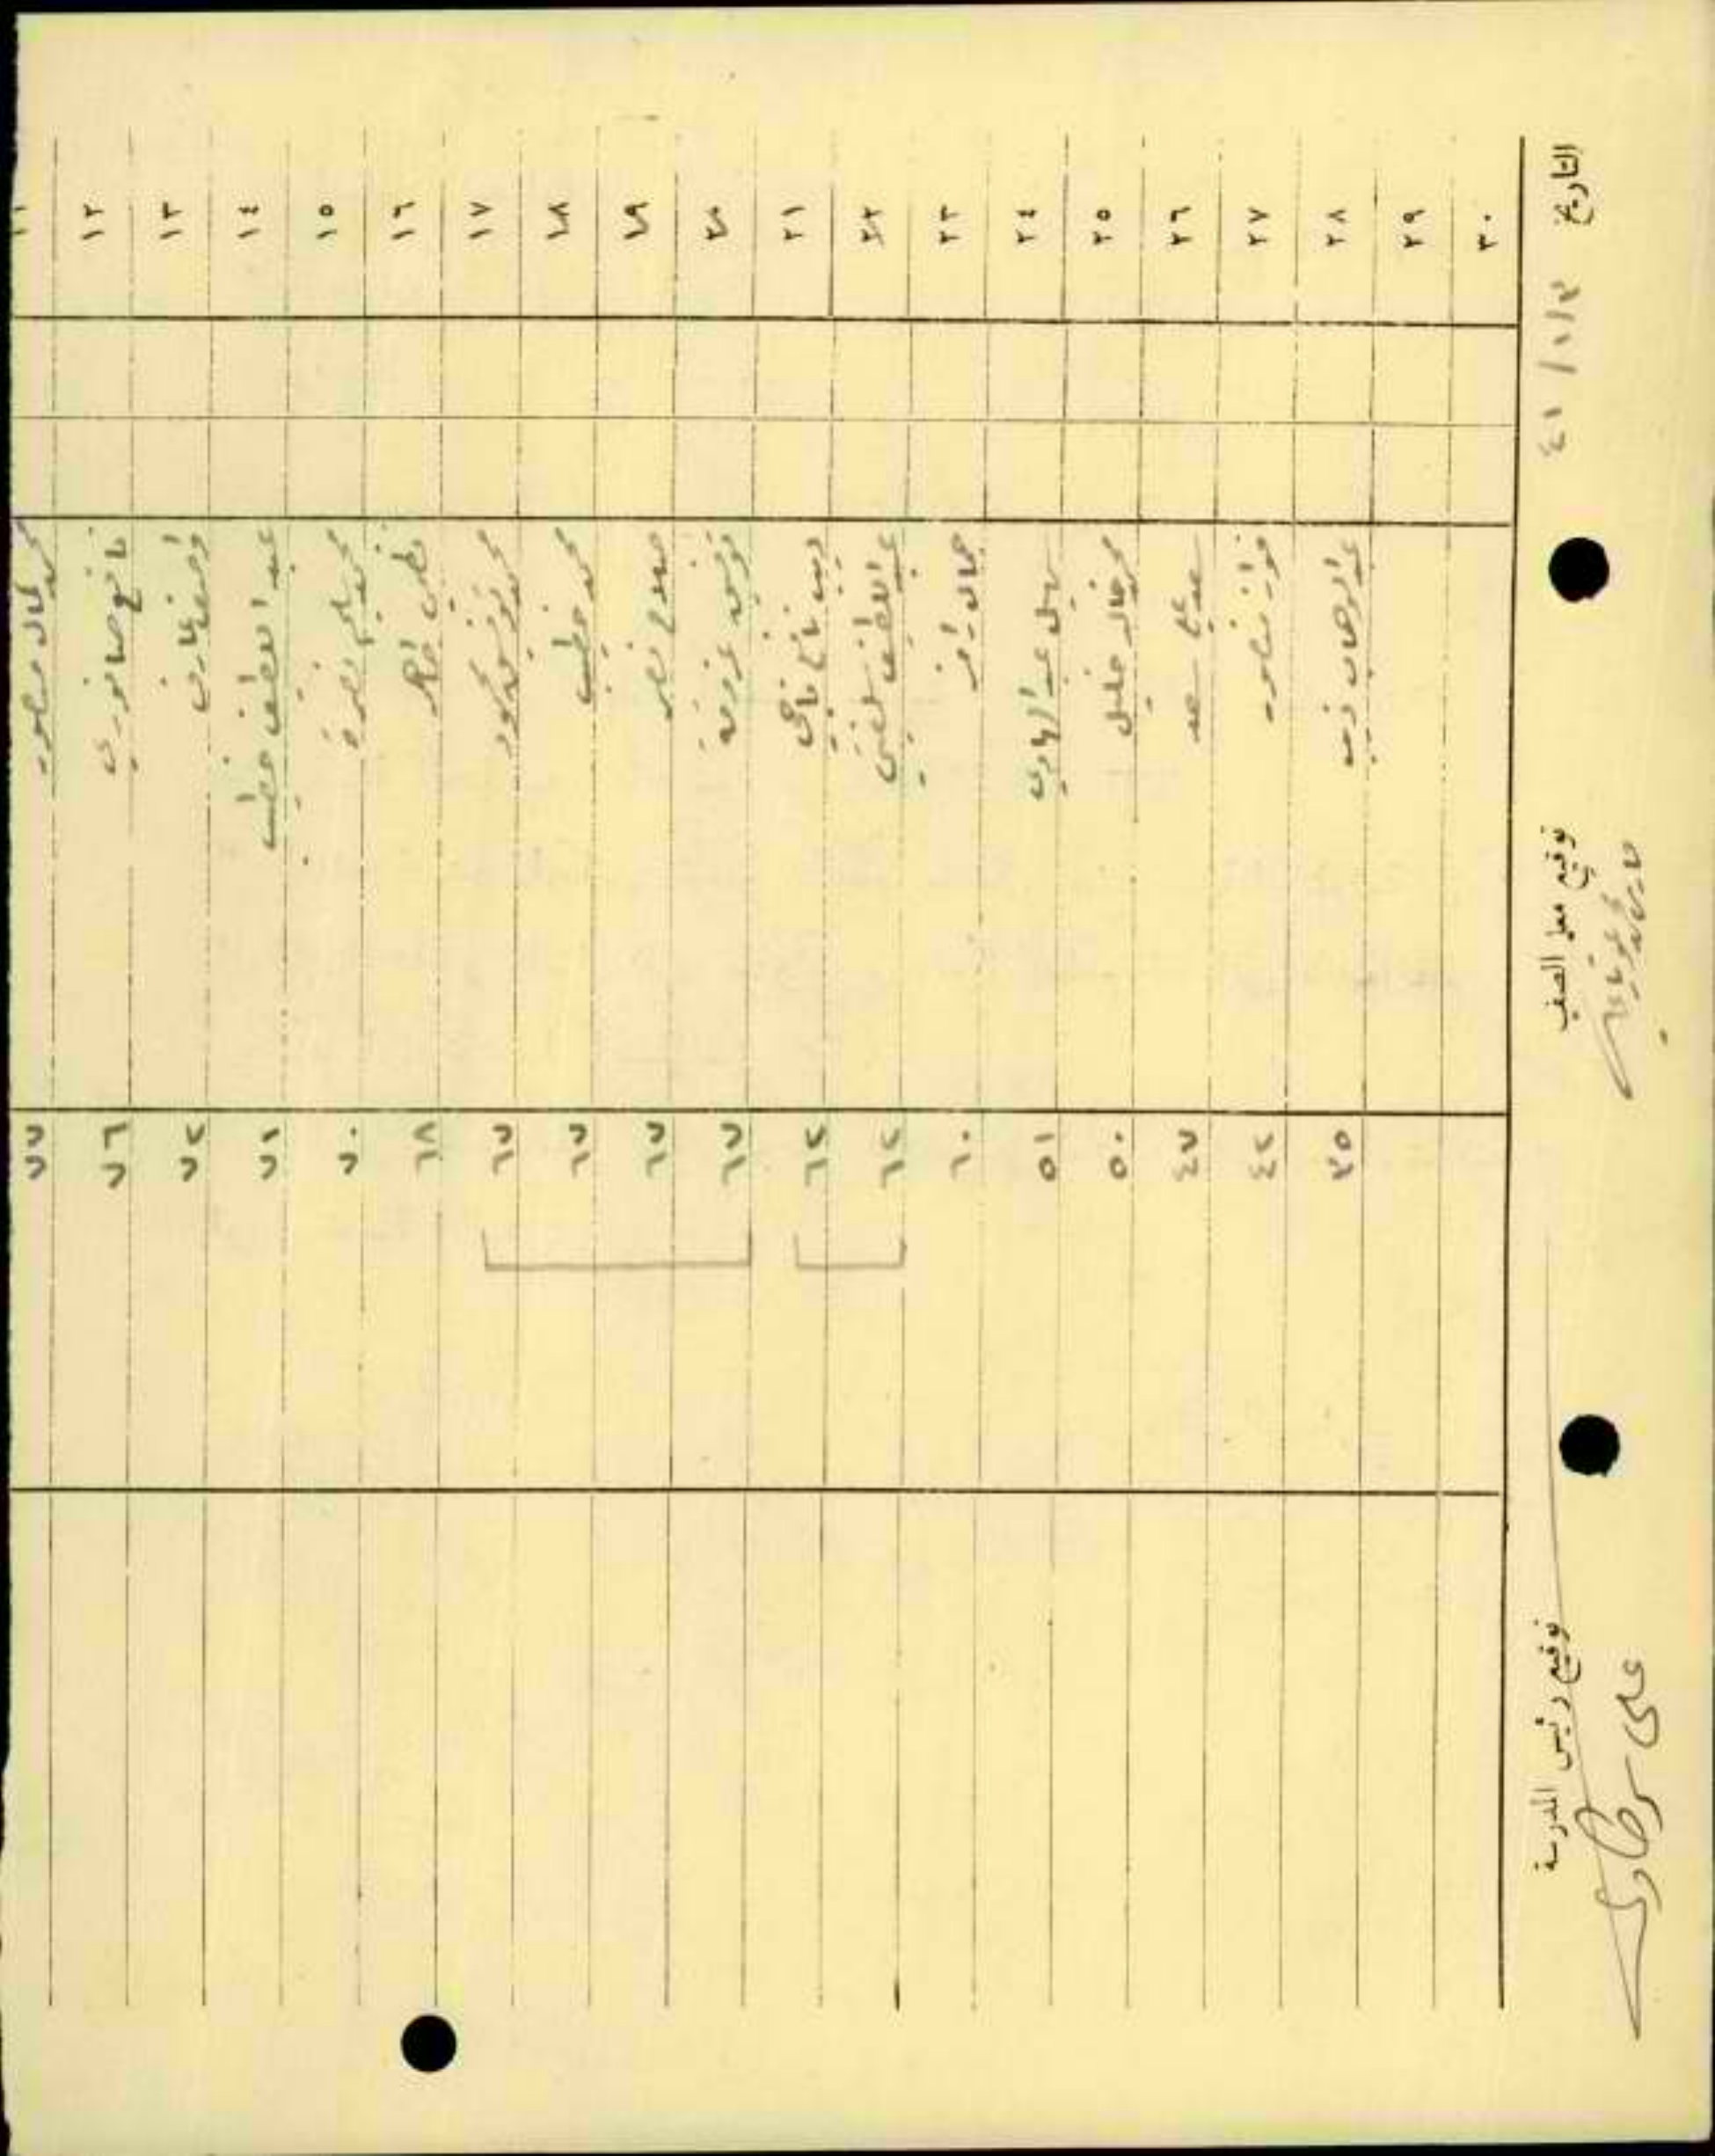 ١١ محمد كمال منصور ٧٧
١٢ نافع صانوري ٧٦
١٣ واصف عارف ٧٢
١٤ عبد اللطيف خطيب ٧١
١٥ محمد سليم نصرة ٧٠
١٦ نظمي احمد ٦٨
١٧ محمد توفيق محمود ٦٧
١٨ محمد خطيب ٦٧
١٩ صلاح نصر ٦٧
٢٠ توفيق عزوقة ٦٧
٢١ ديب نافع ناجي ٦٢
٢٢ عبد اللطيف ٦٢
٢٣ جمال رامز ٦٠
٢٤ سهيل عبد الهادي ٥١
٢٥ محمد خالد خليل ٥٠
٢٦ سعد علي سعد ٤٧
٢٧ فواز منصور ٤٢
٢٨ عبد الوهاب ذيب ٣٥
٢٩
٣٠
التاريخ ٤١/١/٣ توقيع معلم الصف توقيع رئيس المدرسة
علي